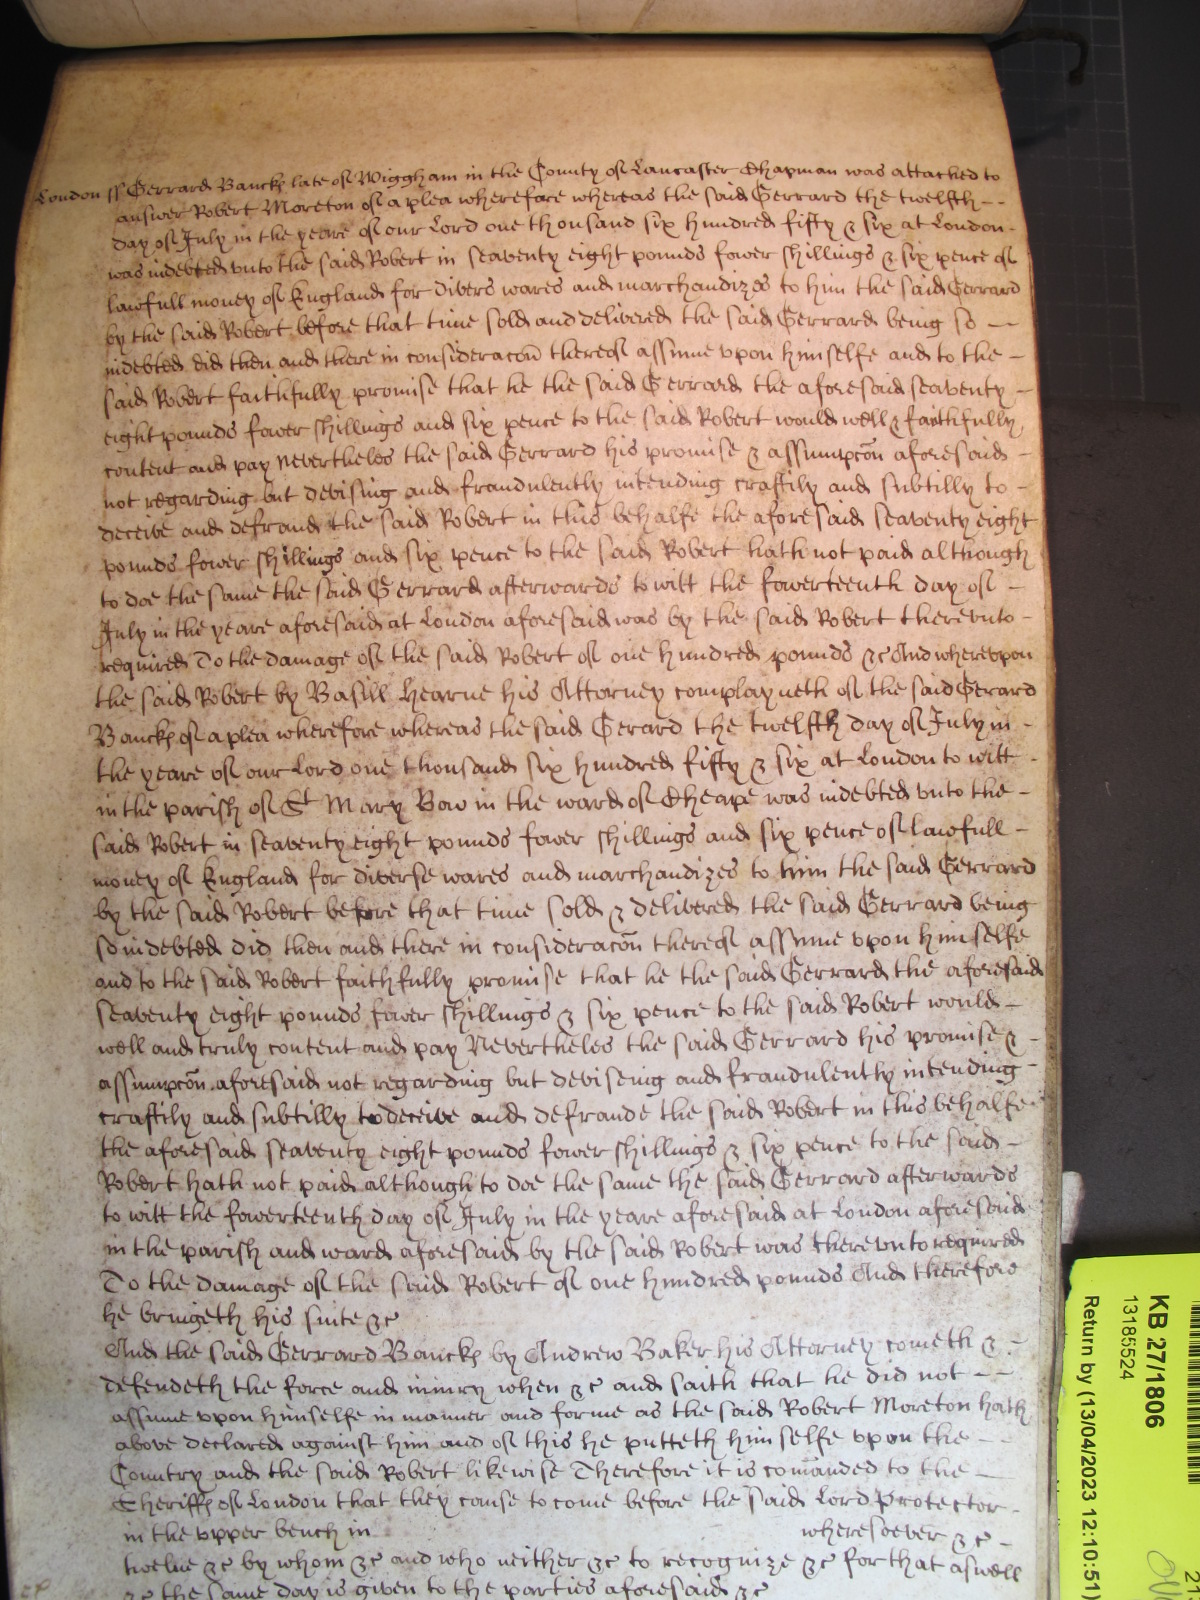 London ss Gerrard Banckes late of Wiggham in the County of Lancaster Chapman was attached to
answer Robert Moreton of a plea wherefore whereas the said Gerrard the twelfth --
day of July in the yeare of our Lord one thousand six hundred fifty & six at London -
was indebted vnto the said Robert in seaventy eight pounds fower shillings & six pence of
lawfull money of England for divers wares and marchandizes to him the said Gerrard
by the said Robert before that time sold and delivered the said Gerrard being so --
indebted did then and there in consideracon thereof assume vpon himselfe and to the -
said Robert faithfully promise that he the said Gerrard the aforesaid seaventy -
eight pounds fower shillings and six pence to the said Robert would well & faithfully
content and pay Nevertheles the said Gerrard his promise & assumpcon aforesaid -
not regarding but devising and fraudulently intending craftily and subtilly to -
deceive and defraud the said Robert in this behalfe the aforesaid seaventy eight
pounds fower shillings and six pence to the said Robert hath not paid although
to doe the same the said Gerrard afterwards to witt the fowerteenth day of -
July in the yeare aforesaid at London aforesaid was by the said Robert therevnto -
required To the damage of the said Robert of one hundred pounds &c And wherevpon
the said Robert by Basill Hearne his Attorney complayneth of the said Gerard
Banckes of a plea wherefore whereas the said Gerard the twelfth day of July in -
the yeare of our Lord one thousand six hundred fifty & six at London to witt -
in the parish of St Mary Bow in the ward of Cheape was indebted vnto the -
said Robert in seaventy eight pounds fower shillings and six pence of lawfull -
money of England for diverse wares and marchandizes to him the said Gerrard
by the said Robert before that time sold & delivered the said Gerrard being
so indebted did then and there in consideracon thereof assume vpon himselfe
and to the said Robert faithfully promise that he the said Gerrard the aforesaid
seaventy eight pounds fower shillings & six pence to the said Robert would -
well and truly content and pay Nevertheles the said Gerrard his promise & -
assumpcon aforesaid not regarding but deviseing and fraudulently intending -
craftily and subtilly to deceive and defraude the said Robert in this behalfe -
the aforesaid seaventy eight pounds fower shillings & six pence to the said -
Robert hath not paid although to doe the same the said Gerrard afterwards
to witt the fowerteenth day of July in the yeare aforesaid at London aforesaid
in the parish and ward aforesaid by the said Robert was therevnto required
To the damage of the said Robert of one hundred pounds And therefore
he bringeth his suite &c
And the said Gerrard Banckes by Andrew Baker his Attorney cometh & -
defendeth the force and iniury when &c and saith that he did not --
assume vpon himselfe in manner and forme as the said Robert Moreton hath
above declared against him and of this he putteth himselfe vpon the --
Country and the said Robert likewise Therefore it is comanded to the --
Sheriffes of London that they cause to come before the said Lord Protector -
in the vpper bench in wheresoever &c -
twelue &c by whom &c and who neither &c to recognize &c for that aswell
&c the same day is given to the parties aforesaid &c
KB 27/1806
13185524
Return by (13/04/2023 12:10:51)